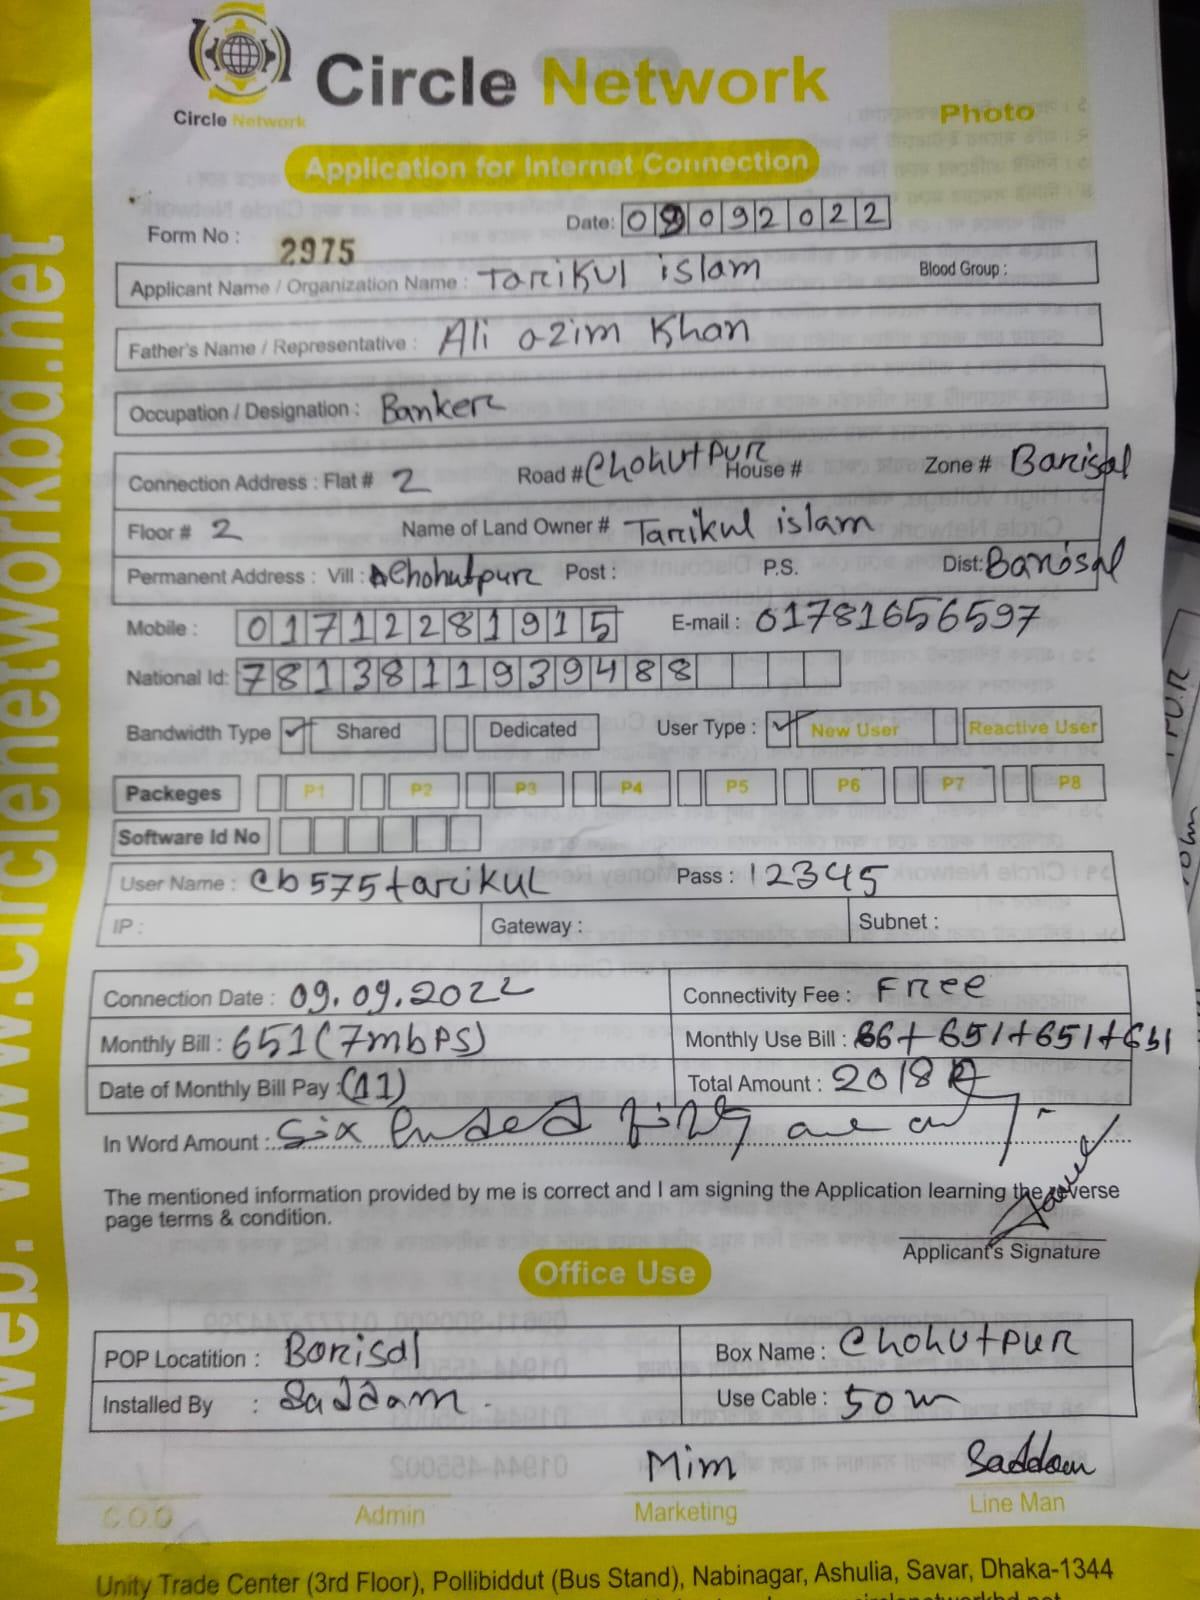 Circle Network
Circle Network
Photo
Application for Internet Connection
Form No : 2975
Date: 09092022
Applicant Name / Organization Name : Tarikul islam Blood Group :
Father's Name / Representative : Ali azim Khan
Occupation / Designation : Banker
Connection Address : Flat # 2 Road # Chohutpur House # Zone # Barisal
Floor # 2 Name of Land Owner # Tarikul islam
Permanent Address : Vill : Chohutpur Post : P.S. Dist: Barisal
Mobile : 01712281915 E-mail : 01781656597
National Id: 7813811939488
Bandwidth Type Shared Dedicated User Type : New User Reactive User
Packeges P1 P2 P3 P4 P5 P6 P7 P8
Software Id No
User Name : cb575tarikul Pass : 12345
IP : Gateway : Subnet :
Connection Date : 09.09.2022 Connectivity Fee : Free
Monthly Bill : 651 (7mbps) Monthly Use Bill : 66+651+651+651
Date of Monthly Bill Pay : (11) Total Amount : 2018
In Word Amount : Six fifty
The mentioned information provided by me is correct and I am signing the Application learning the reverse
page terms & condition.
Applicant's Signature
Office Use
POP Locatition : Barisal Box Name : Chohutpur
Installed By : Saddam. Use Cable : 50m
Mim Saddam
C.O.O Admin Marketing Line Man
Unity Trade Center (3rd Floor), Pollibiddut (Bus Stand), Nabinagar, Ashulia, Savar, Dhaka-1344
web: www.circlenetworkbd.net